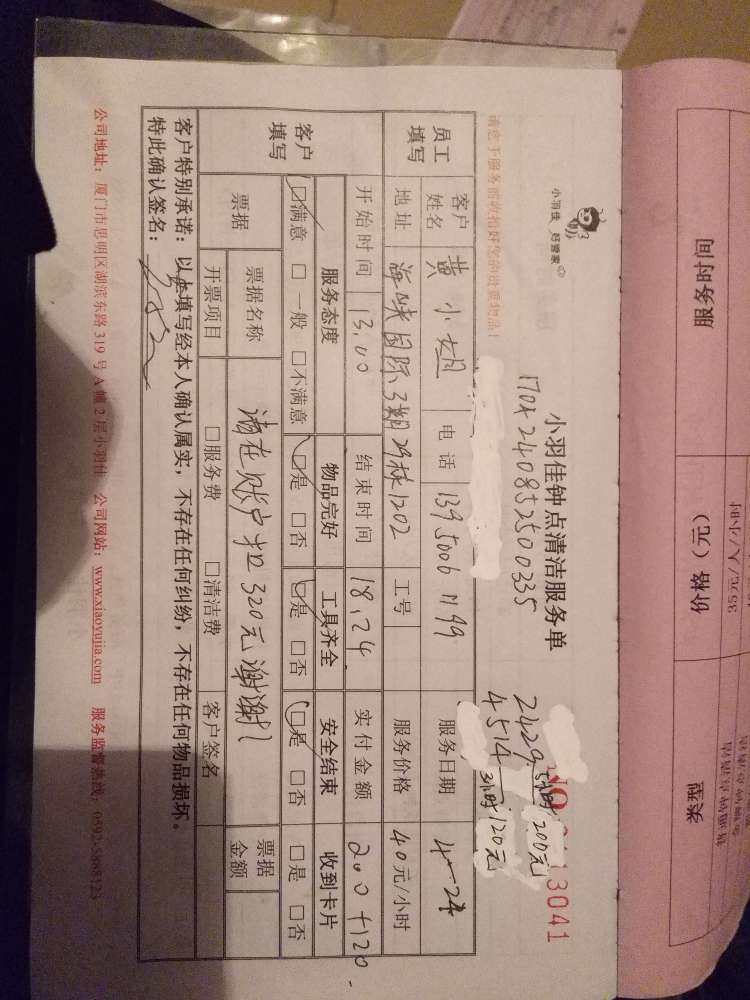 小羽佳 好管家
小羽佳钟点清洁服务单
170423 2408525 00335
3041
2429 5小时 200元
4514 3小时 120元
员工填写
客户姓名 黄小姐 电话 139 5006 1199 服务日期 4—24
地址 海峡国际3期29栋1202 工号 服务价格 40元/小时
开始时间 13.00 结束时间 18.24 实付金额 200+120
客户填写
服务态度 物品完好 工具齐全 安全结束 收到卡片
□满意 □一般 □不满意 □是 □否 □是 □否 □是 □否 □是 □否
票据 票据名称 请在账户扣320元谢谢! 票据金额
开票项目 □服务费 □清洁费 客户签名
客户特别承诺:以上填写经本人确认属实,不存在任何纠纷,不存在任何物品损坏。
特此确认签名:
公司地址:厦门市思明区湖滨东路319号A幢2层小羽佳 公司网站:www.xiaoyujia.com 服务监督热线:05925388123
服务时间 价格(元) 类型
35元/人/小时